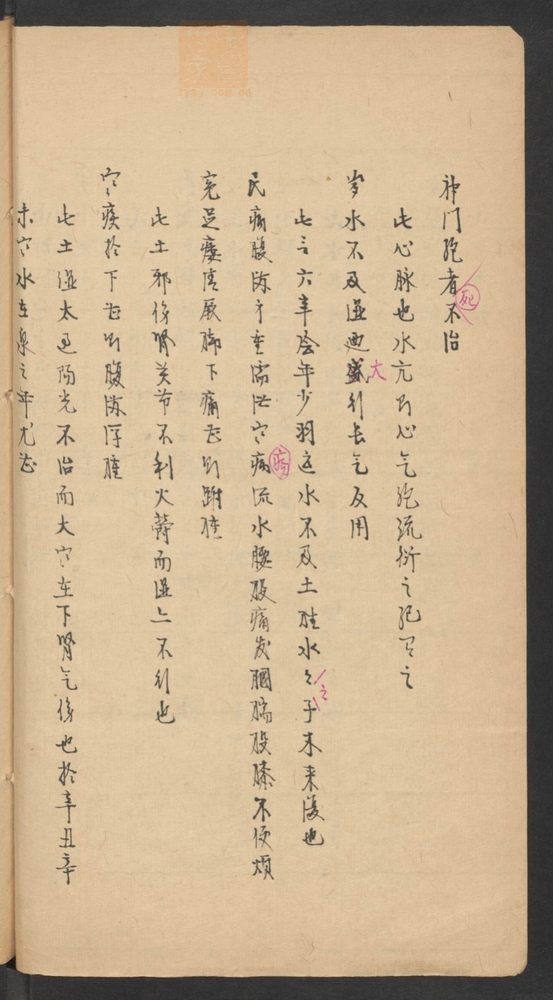 神门绝者死不治
此心脉也水亢则心气绝流衍之纪有之
岁水不及湿迺大盛行长气反用
此言六辛阴年少羽运水不及土胜水々之子木来复也
民病腹满身重濡泄寒病疡流水腰股痛发腘腨股膝不便烦
冤足痿清厥脚下痛甚则跗肿
此土邪伤肾关节不利火郁而湿亦不行也
寒疾於下甚则腹满浮肿
此土湿太过阳光不治而大寒在下肾气伤也於辛丑辛
未寒水在泉之年尤甚